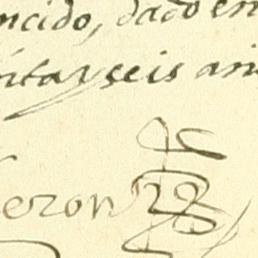 ncido, dado en
ntayseis an
eron